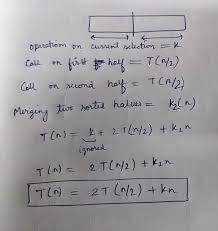 operation on current selection = k
Call on first half = T(n/2)
Call on second half = T(n/2)
Merging two sorted halves = k₂(n)
T(n) = k + 2T(n/2) + k₂n
ignored
T(n) = 2T(n/2) + k₂n
T(n) = 2T(n/2) + kn